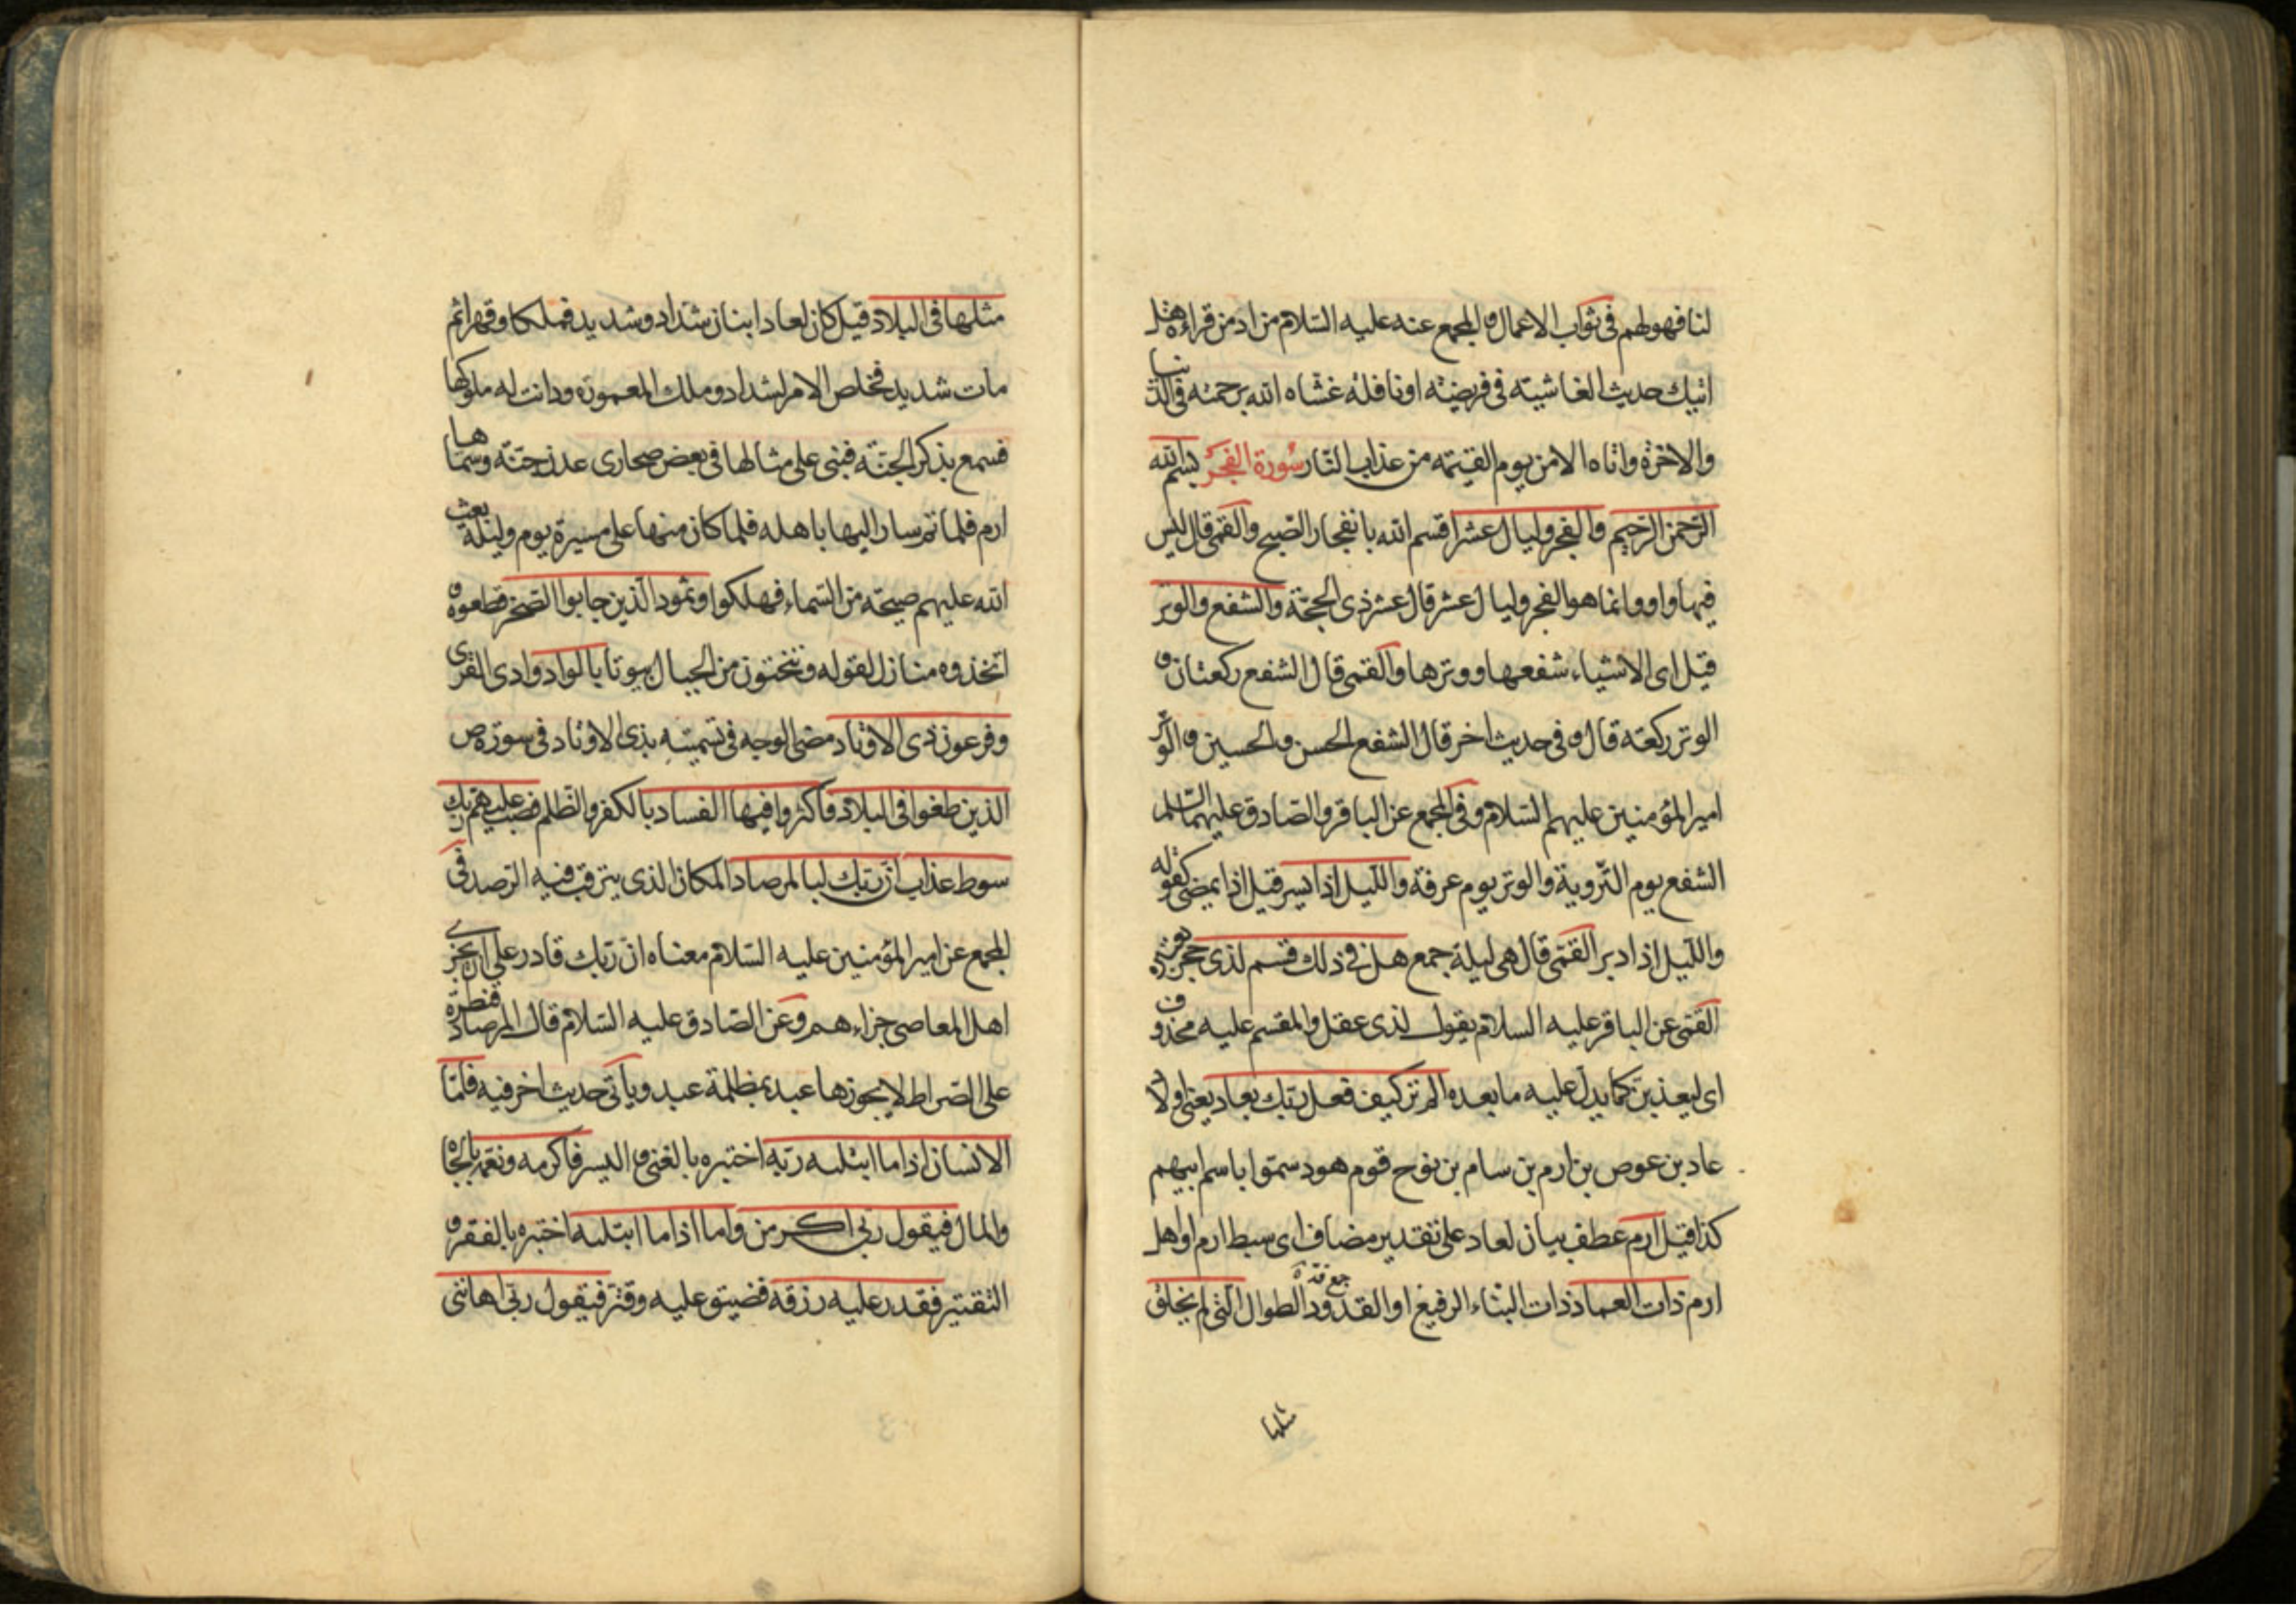 لنا فهو لهم في ثواب الاعمال و المجمع عنه عليه السلام من ادمن قراءة هل
اتيك حديث الغاشية في فريضة او نافلة غشاه الله برحمته في الدنيا
والاخرة واتاه الامن يوم القيمة من عذاب النار سورة الفجر بسم الله
الرحمن الرحيم والفجر وليال عشر اقسم الله بانفجار الصبح والقمي قال ليس
فيها واو وانما هو الفجر وليال عشر قال عشر ذي الحجة والشفع والوتر
قيل اي الاشياء شفعها ووترها والقمي قال الشفع ركعتان و
الوتر ركعة قال و في حديث اخر قال الشفع الحسن و الحسين و الوتر
امير المؤمنين عليهم السلام وفي المجمع عن الباقر والصادق عليهما السلم
الشفع يوم التروية والوتر يوم عرفة والليل اذا يسر قيل اذا يمضي كقوله
والليل اذ ادبر القمي قال هي ليلة جمع هل في ذلك قسم لذي حجر يعتبره
القمي عن الباقر عليه السلام يقول لذي عقل والمقسم عليه محذوف
اي ليعذبن كما يدل عليه ما بعده الم تر كيف فعل ربك بعاد يعني اولاد
عاد بن عوص بن ارم بن سام بن نوح قوم هود سموا باسم ابيهم
كذا قيل ارم عطف بيان لعاد على تقدير مضاف اي سبط ارم او اهل
ارم ذات العماد ذات البناء الرفيع او القدود الطوال التي لم يخلق
جمع قد
مثلها
مثلها في البلاد قيل كان لعاد ابنان شداد وشديد فملكا وقهرا ثم
مات شديد فخلص الامر لشداد وملك المعمورة ودانت له ملوكها
فسمع بذكر الجنة فبنى على مثالها في بعض صحارى عدن جنة وسماها
ارم فلما تم سار اليها باهله فلما كان منها على مسيرة يوم وليلة بعث
الله عليهم صيحة من السماء فهلكوا وثمود الذين جابوا الصخر قطعوه و
اتخذوه منازل لقوله وتنحتون من الجبال بيوتا بالواد وادي القرى
وفرعون ذي الاوتاد مضى الوجه في تسميته بذي الاوتاد في سورة ص
الذين طغوا في البلاد فاكثروا فيها الفساد بالكفر والظلم فصب عليهم ربك
سوط عذاب ان ربك لبالمرصاد المكان الذي يترقب فيه الرصد في
المجمع عن امير المؤمنين عليه السلام معناه ان ربك قادر على ان يجزي
اهل المعاصي جزاءهم وعن الصادق عليه السلام قال المرصاد قنطرة
على الصراط لا يجوزها عبد بمظلمة عبد وياتي حديث اخر فيه فاما
الانسان اذا ما ابتليه ربه اختبره بالغنى و اليسر فاكرمه ونعمه بالجاه
والمال فيقول ربي اكرمن واما اذا ما ابتليه اختبره بالفقر و
التقتير فقدر عليه رزقه فضيق عليه وقتر فيقول ربي اهانني